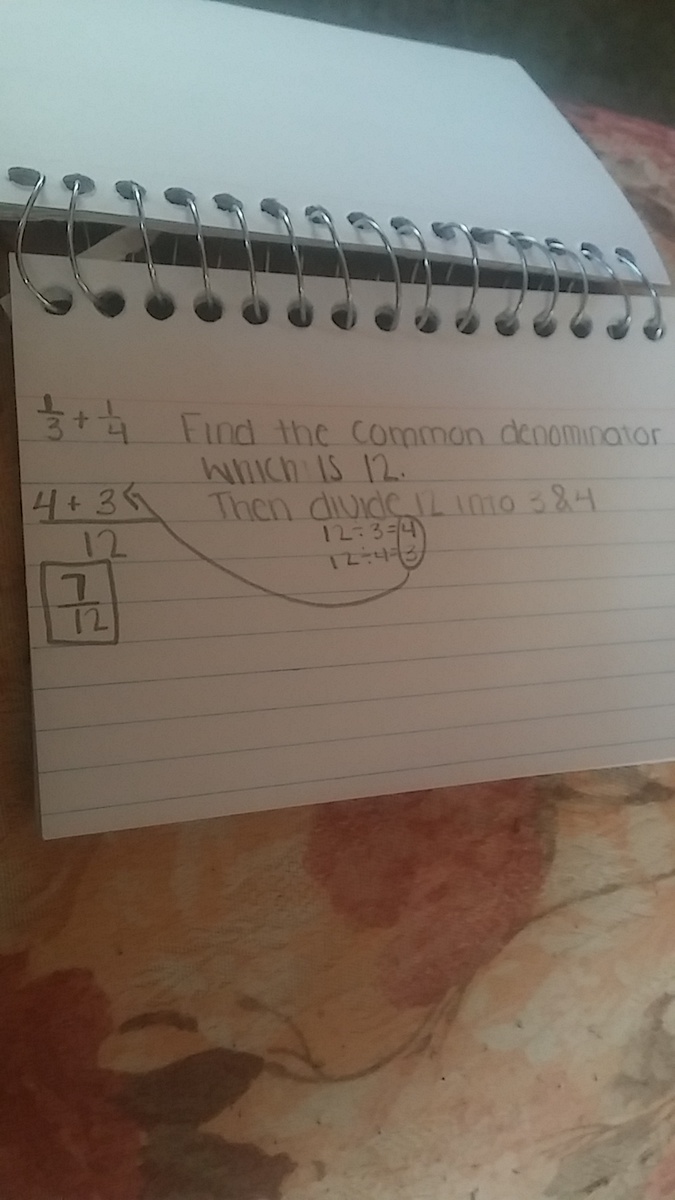 1/3 + 1/4 Find the common denominator
which is 12.
4 + 3 Then divide 12 into 3 & 4
12 12÷3=4
12÷4=3
7/12